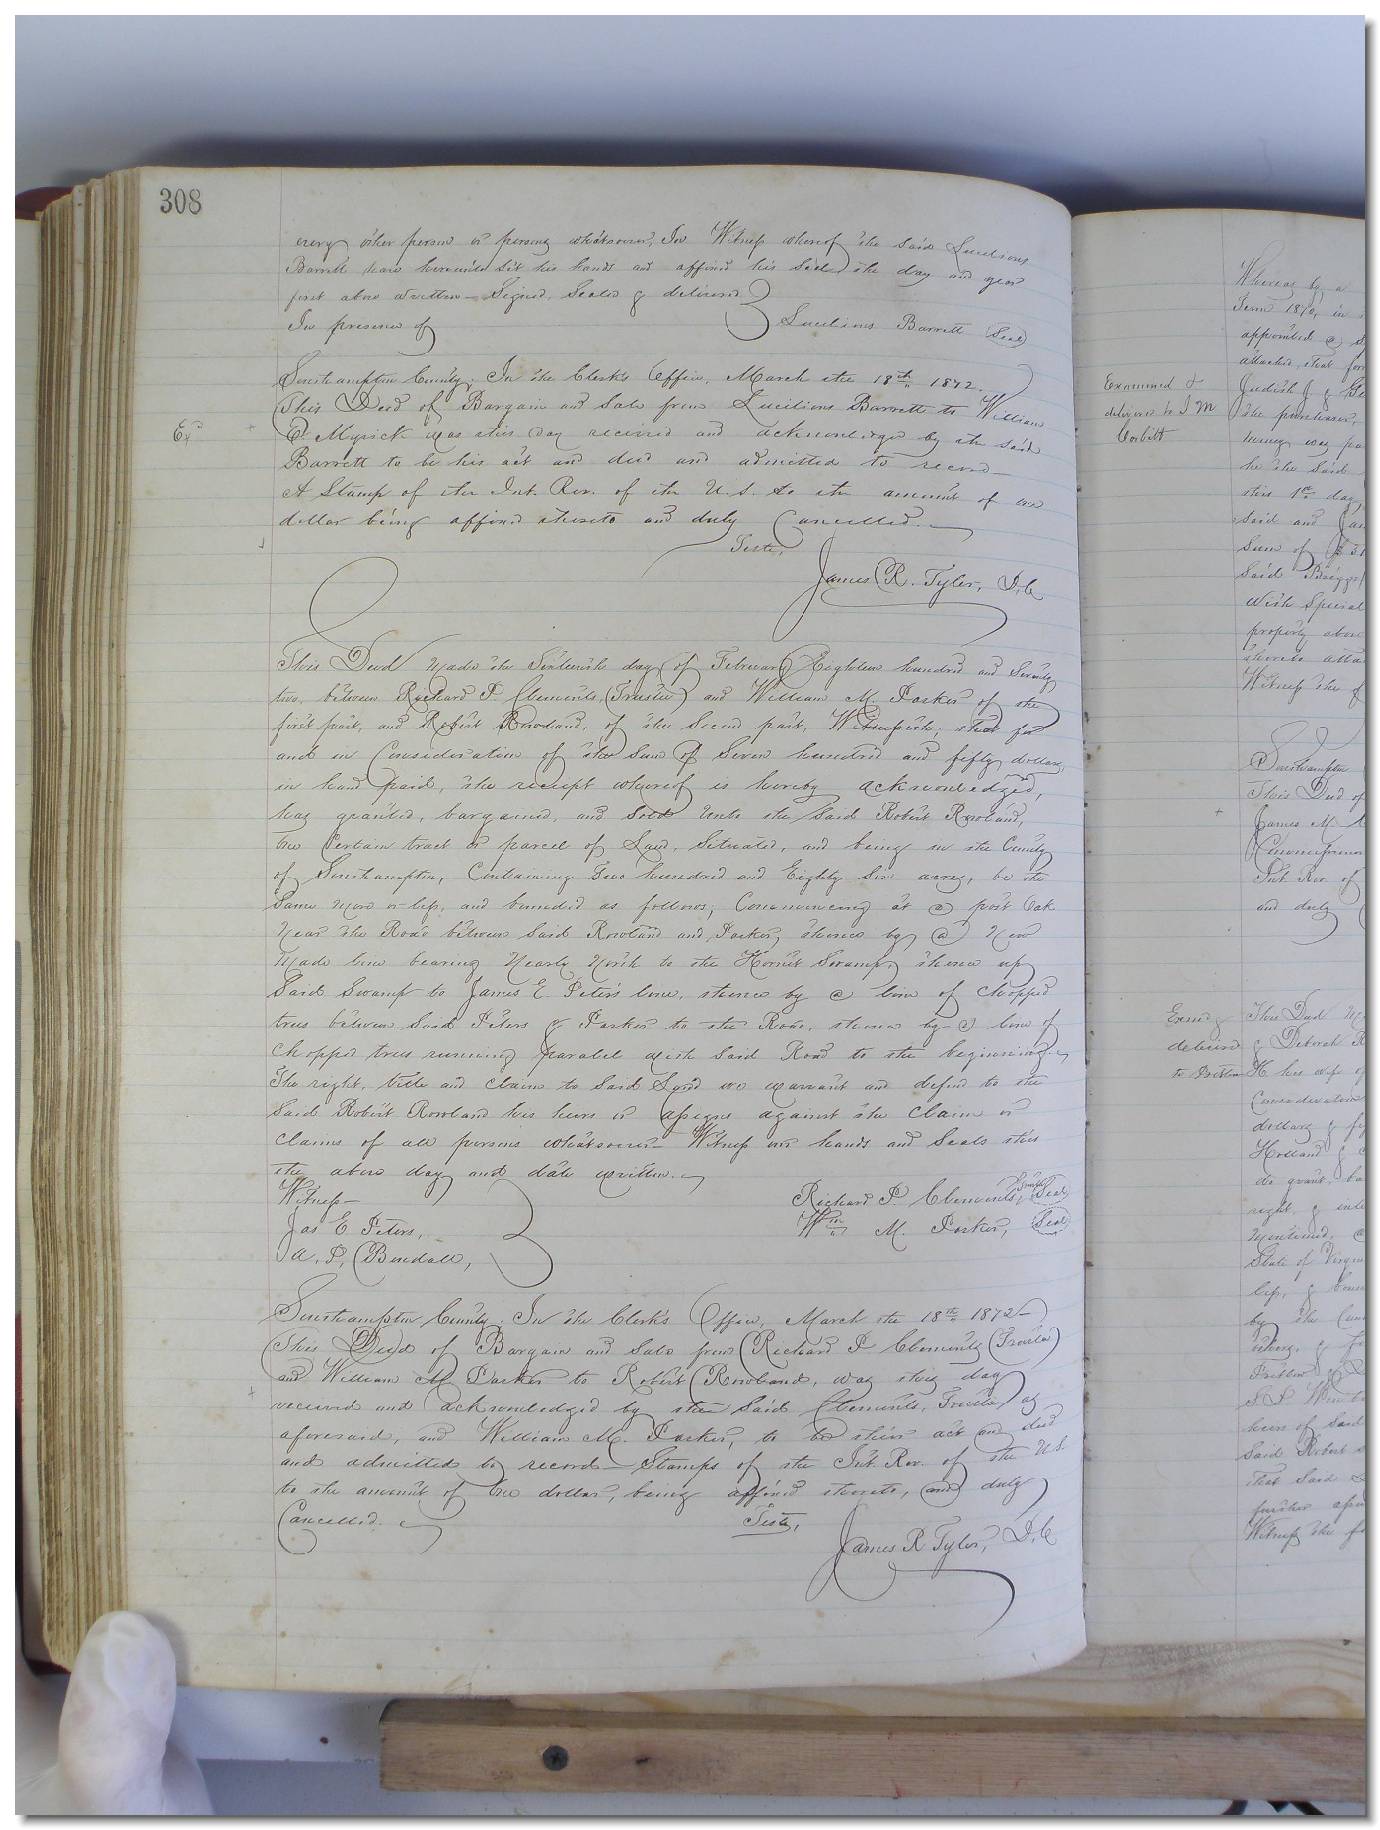 308
every other person or persons whatsoever, In Witness whereof the said Lucilious
Barrett have hereunto set his hands and affixed his Seal the day and year
first above written— Signed, Sealed & delivered
In presence of Lucilious Barrett (Seal)
Southampton County; In the Clerk's Office, March the 18th 1872.
This Deed of Bargain and Sale from Lucilious Barrett to William
Exd E. Myrick was this day received and acknowledged by the said
Barrett to be his act and deed and admitted to record—
A Stamp of the Int. Rev. of the U.S. to the amount of one
dollar being affixed thereto and duly Cancelled.
Teste,
James R. Tyler, D.C
This Deed made the Sixteenth day of February Eighteen hundred and Seventy
two, between Richard P. Clements, (Trustee) and William M. Parker of the
first part, and Robert Rowland, of the Second part, Witnesseth; that for
and in Consideration of the Sum of Seven hundred and fifty dollars,
in hand paid, the receipt whereof is hereby acknowledged,
has granted, bargained, and Sold unto the Said Robert Rowland,
one Certain tract or parcel of Land, Situated, and being in the County
of Southampton, Containing Two hundred and Eighty Six acres, be the
Same more or less, and bounded as follows; Commencing at a post Oak
near the Road between Said Rowland and Parker, thence by a New
made line bearing Nearly North to the Hornet Swamp, thence up
Said Swamp to James E. Peters line, thence by a line of Chopped
trees between Said Peters & Parker to the Road, thence by a line of
Chopped trees running paralel with Said Road to the beginning.
The right, title and Claim to Said Land we warrant and defend to the
Said Robert Rowland his heirs or assigns against the Claim or
Claims of all persons whatsoever— Witness our hands and Seals this
the above day and date written.
Witness— Richard P. Clements, Trustee (Seal)
Jas E Peters, Wm M. Parker, (Seal)
A. P. Bendall,
Southampton County; In the Clerk's Office, March the 18th 1872—
This Deed of Bargain and Sale from Richard P. Clements (Trustee)
and William M. Parker to Robert Rowland, was this day
received and acknowledged by the Said Clements, Trustee, as
aforesaid, and William M. Parker, to be their act and deed
and admitted to record— Stamps of the Int. Rev. of the U.S.
to the amount of one dollar, being affixed thereto, and duly
Cancelled. Teste,
James R Tyler, D.C
Whereas by a
Term 1870, in
appointed a
attached, that for
Examined & Judith J &
delivered to J M the purchaser,
Corbitt money was pa
he the Said
this 1st day
Said and Ja
Sum of $
Said Briggs
With Special
property above
thereto atta
Witness the f
Southampton
This Deed of
James M
Commissioner
Int. Rev. of
and duly
This Deed M
delivered & Deborah R
to H his wife of
Consideration
dollars & f
Holland &
do grant ba
right, & inte
mentioned,
State of Virgin
less, & boun
by the
Pretlow
heirs of Said
Said Robert
that Said
further
Witness the f